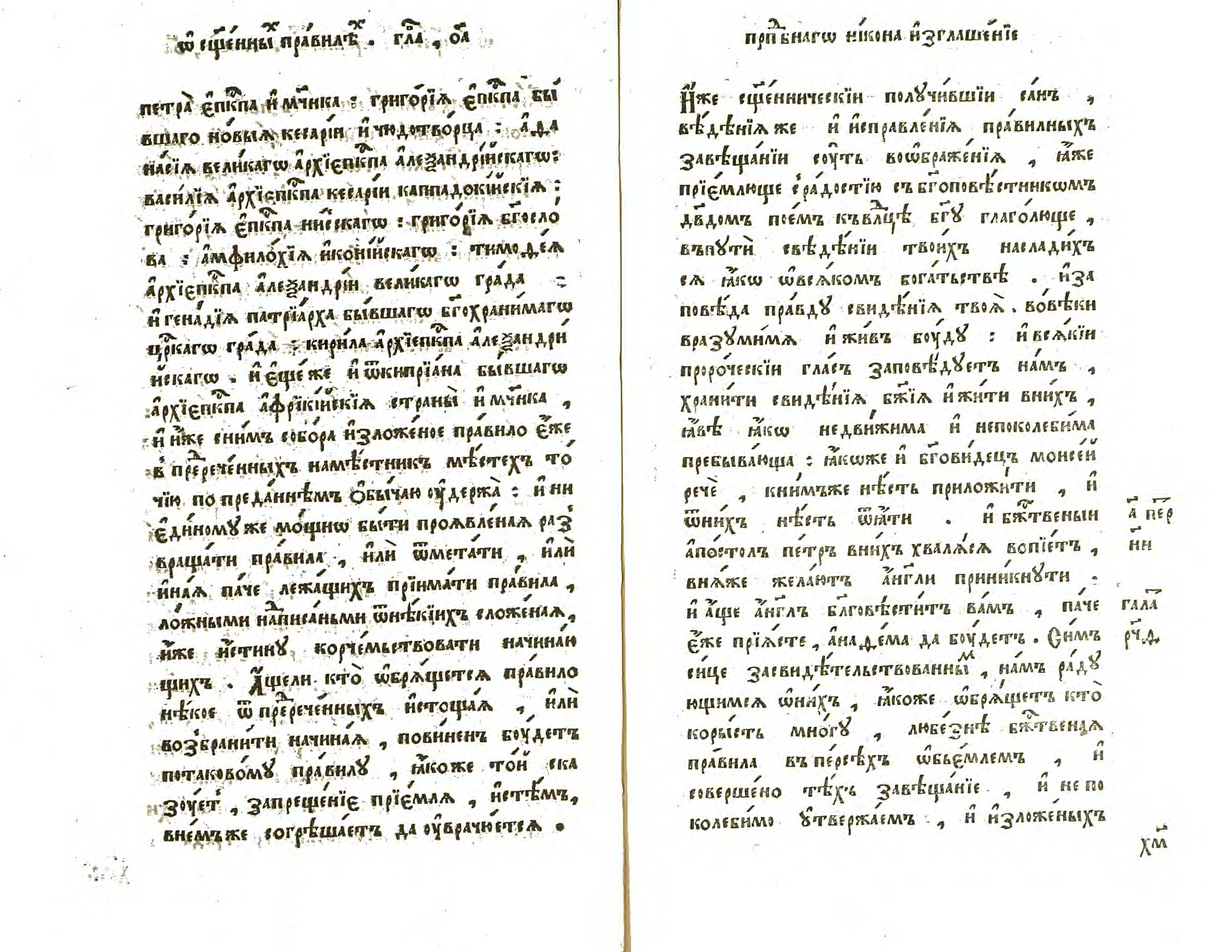 ѿ сщ҃е́нны́хъ пра́вилѣⷯ. гл҃а, о҃а
петра̀ є҆пⷭ҇кпа и҆ мч҃нка : григо́рїѧ є҆пⷭ҇кпа бы́
вшаго но́выѧ кесарі́и и҆ чюдотво́рца : а҆ѳа
на́сїѧ вели́кагѡ а҆рхїєпⷭ҇кпа а҆леѯандрі́йскагѡ:
васи́лїѧ а҆рхїєпⷭ҇кпа кеса́рїи каппадокі́йскїѧ :
григо́рїѧ є҆пⷭ҇кпа ни́сскагѡ : григо́рїѧ бг҃осло́
ва : а҆мфило́хїѧ и҆коні́йскагѡ : тимоѳе́ѧ
а҆рхїєпⷭ҇кпа а҆леѯандрі́и вели́кагѡ гра́да :
и҆ гена́дїѧ патрїа́рха бы́вшагѡ бг҃охрани́магѡ
црⷭ҇кагѡ гра́да : кири́ла а҆рхїєпⷭ҇кпа а҆леѯандрі́
йскагѡ . и҆ є҆ще́ же и҆ ѿ кипрїа́на бы́вшагѡ
а҆рхїєпⷭ҇кпа а҆фрїкі́йскїѧ страны̀ и҆ мч҃нка ,
и҆ и҆́же сни́мъ собо́ра и҆зложе́ное пра́вило є҆́же
в прⷣерече́нныхъ намѣ́стникъ мѣ́стехъ то́
чїю по преда́ннѣмъ ѻ҆бы́чаю ѹ҆держа̀ : и҆ ни
є҆ди́ному же мо́щнѡ бы́ти проѧвле́наѧ раз
враща́ти пра́вила , и҆лѝ ѿмета́ти , и҆лѝ
и҆на́ѧ па́че лежа́щихъ прїима́ти пра́вила ,
ло́жными напи́саньми ѿ нѣ́кїихъ сложе́наѧ,
и҆́же и҆́стину корче́мьствовати начина́ю
щихъ . А҆́щели кто̀ ѡ҆брѧ́щетсѧ пра́вило
нѣ́кое ѿ прⷣерече́нныхъ и҆стоща́ѧ , и҆лѝ
возбрани́ти начина́ѧ , пови́ненъ бу́детъ
потаково́му пра́вилу , ꙗ҆́коже то́й ска
зу́етъ , запреще́нїє прїє́млѧ , и҆стѣ́мъ,
вне́мъ же согрѣша́етъ да ѹ҆врачю́етсѧ .
прпⷣбнагѡ ни́кона и҆зглаше́нїе
И҆́же сщ҃е́нническїи получи́вшїи са́нъ ,
вѣ́дѣнїѧ же и҆ и҆справле́нїѧ пра́вилныхъ
завѣща́нїи су́ть воѡбраже́нїѧ , ꙗ҆́же
прїє́млюще с ра́достїю съ бг҃оповѣ́стникѡмъ
дв҃домъ пое́мъ къ влⷣцѣ бг҃у глаго́люще ,
въ путѝ свѣдѣ́нїи твои́хъ наслади́хъ
сѧ ꙗ҆́кѡ ѡ҆ всѧ́комъ бога́тьствѣ . и҆ за
повѣ́да пра́вду свидѣ́нїѧ твоѧ̀ . во́вѣки
вразуми́мѧ и҆ жи́въ бу́ду : и҆ всѧ́кїи
проро́ческїи гла́съ заповѣ́дуетъ на́мъ ,
храни́ти свидѣ́нїѧ бж҃їѧ и҆ жи́ти вни́хъ ,
ꙗ҆́вѣ ꙗ҆́кѡ недви́жима и҆ непоколеби́ма
пребыва́юща : ꙗ҆́коже и҆ бг҃ови́децъ моисе́й
речѐ , кни́мъже нѣ́сть приложи́ти , и҆
ѿни́хъ нѣ́сть ѿꙗ́ти . и҆ бжⷭ҇твеныи
апо́столъ пе́тръ вни́хъ хвалѧ́сѧ вопїе́тъ ,
внѧ́же жела́ютъ а҆́нг҃ли прини́кнути :
и҆ а҆́ще а҆́нг҃лъ бл҃говѣсти́тъ ва́мъ , па́че
є҆́же прїѧ́сте , а҆на́ѳема да бу́детъ . Си́мъ
си́це засвидѣ́тельствованныⷨ , на́мъ ра́ду
ющимсѧ ѡ҆ ни́хъ , ꙗ҆́коже ѡ҆брѧ́щетъ кто̀
коры́сть мно́гу , любе́знѣ бжⷭ҇твенаѧ
пра́вила въ пе́рсѣхъ ѡ҆бъє́млемъ , и҆
соверше́но тѣ́хъ завѣща́нїє , и҆ непо
коле́бимо ѹ҆твержа́емъ , и҆ и҆зложе́ныхъ
а҃ пеⷬ
ни
гала
рч҃ѳ
хм҃